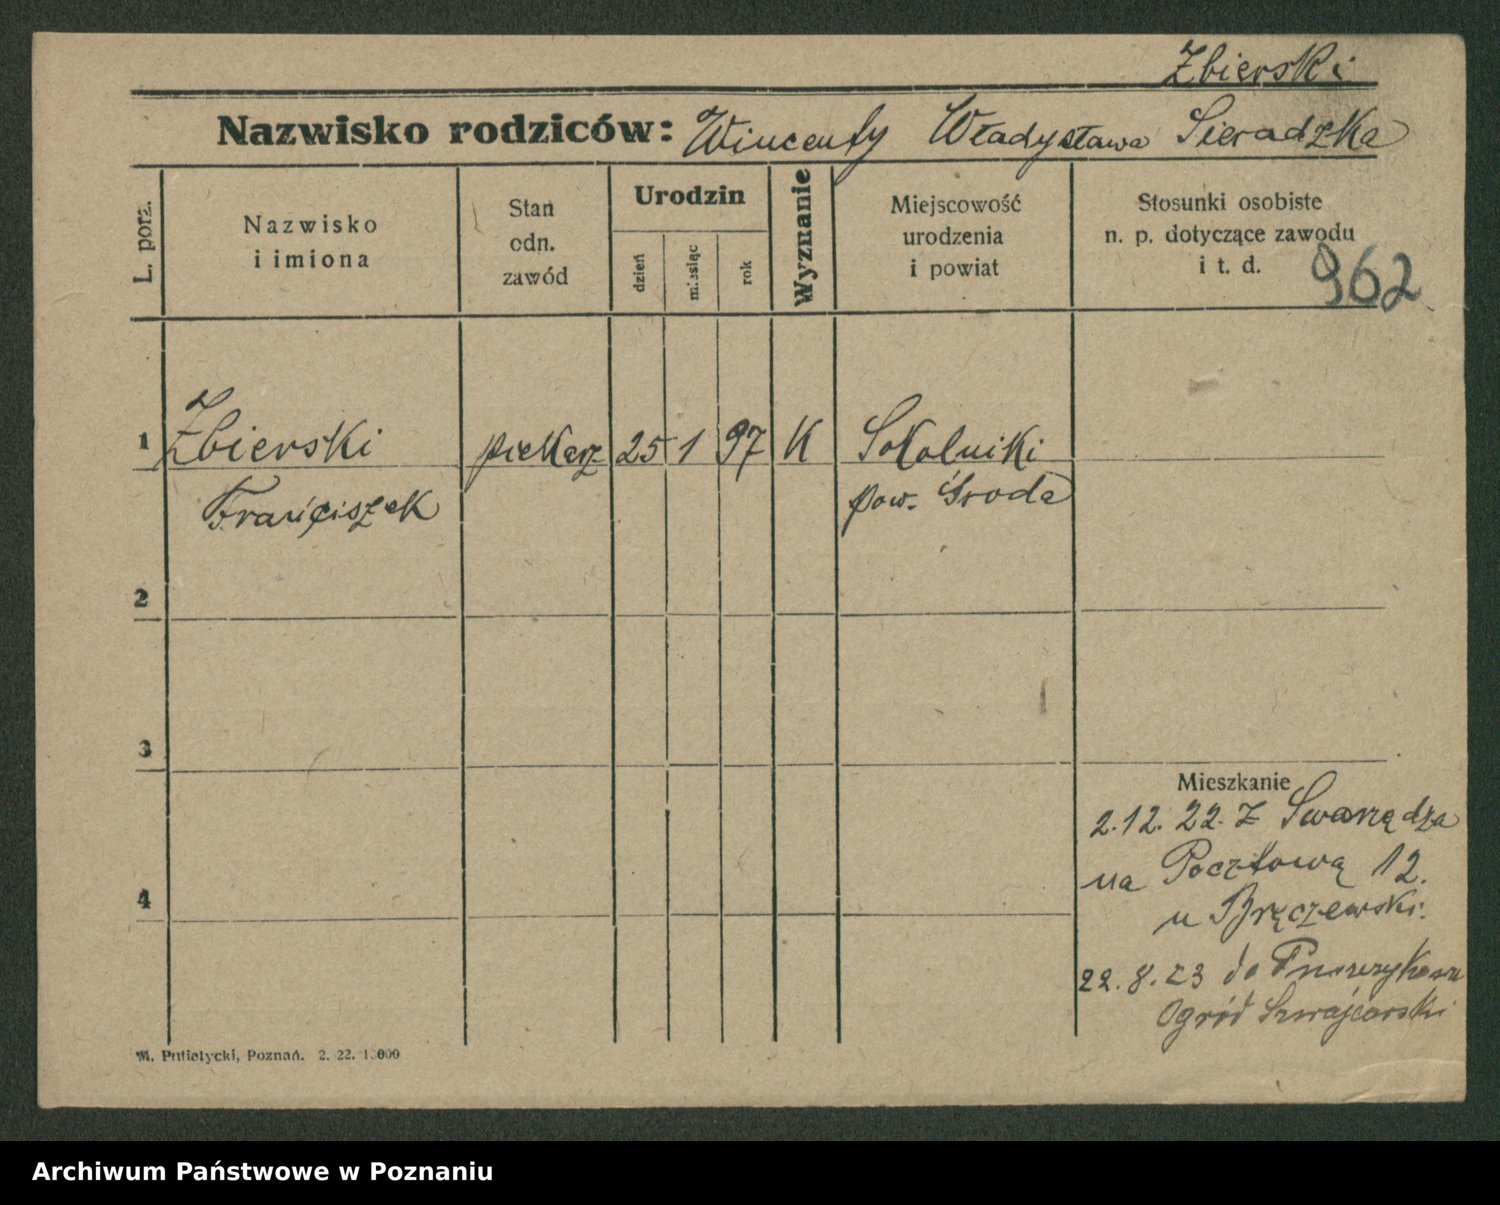 Zbierski
Nazwisko rodziców: Wincenty Władysława Sieradzka
L. porz.
Nazwisko
i imiona
Stan
odn.
zawód
Urodzin
dzień
miesiąc
rok
Wyznanie
Miejscowość
urodzenia
i powiat
Stosunki osobiste
n. p. dotyczące zawodu
i t. d.
962
1 Zbierski piekarz 25 1 97 K Sokolniki
Franciszek pow. Środa
2
3
4
Mieszkanie
2.12. 22. Z Swarzędza
na Pocztową 12.
u Bręczewski.
22. 8. 23 do
Ogród Szwajcarski
M. Putiatycki, Poznań. 2. 22. 10000
Archiwum Państwowe w Poznaniu